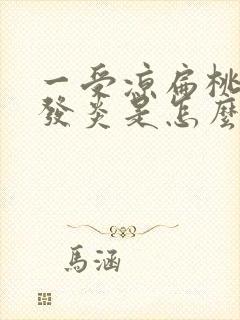 一受涼扁桃
發炎是怎麼
馬涵